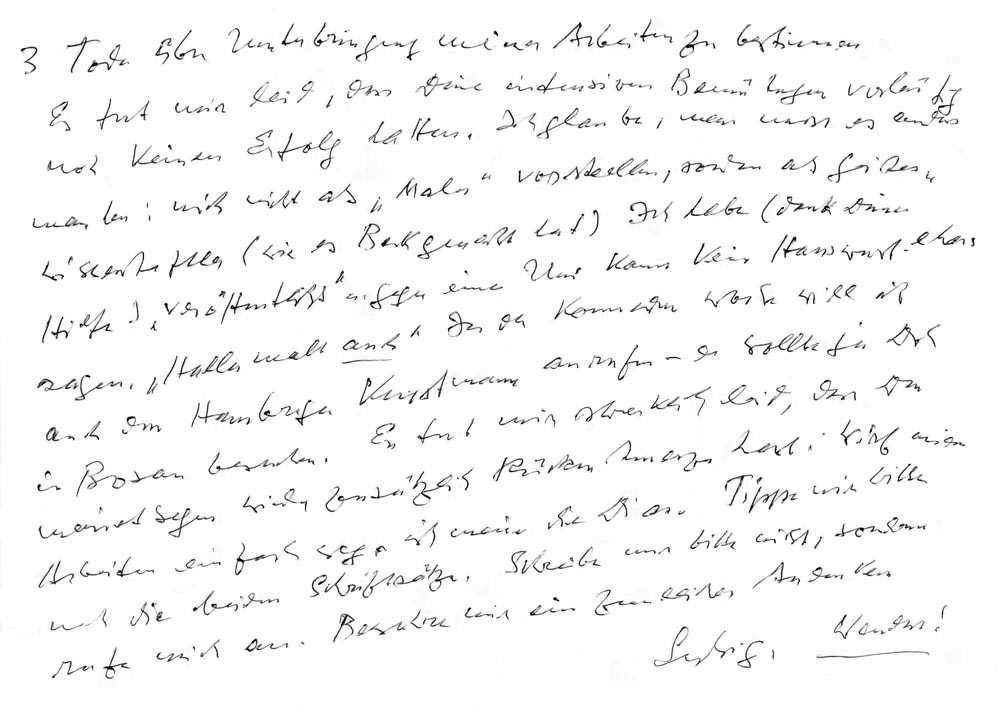 3 Tode über Unterbringung meiner Arbeiten zu bestimmen
Es tut mir leid, dass Deine intensiven Bemühungen vorläufig
noch keinen Erfolg hatten. Ich glaube, man muss es anders
machen: mich nicht als „Maler“ vorstellen, sondern als Geistes-
wissenschaftler (wie es Beck gemacht hat) Ich habe (dank Deiner
Hilfe!) „veröffentlicht“ gegen eine Uni kann kein Hanswurst etwas
sagen. „Halla malt auch“ In der kommenden Woche will ich
auch den Hamburger Kunstmann anrufen – er wollte ja Dich
in Bosau besuchen. Es tut mir schrecklich leid, dass Du
meinetwegen wieder zusätzlich Rückenschmerzen hast: Wirf meine
Arbeiten einfach weg, ich meine die Dias. Tippe mir bitte
noch die beiden Schriftsätze. Schreibe mir bitte nicht, sondern
rufe mich an. Bewahre mir ein Andenken